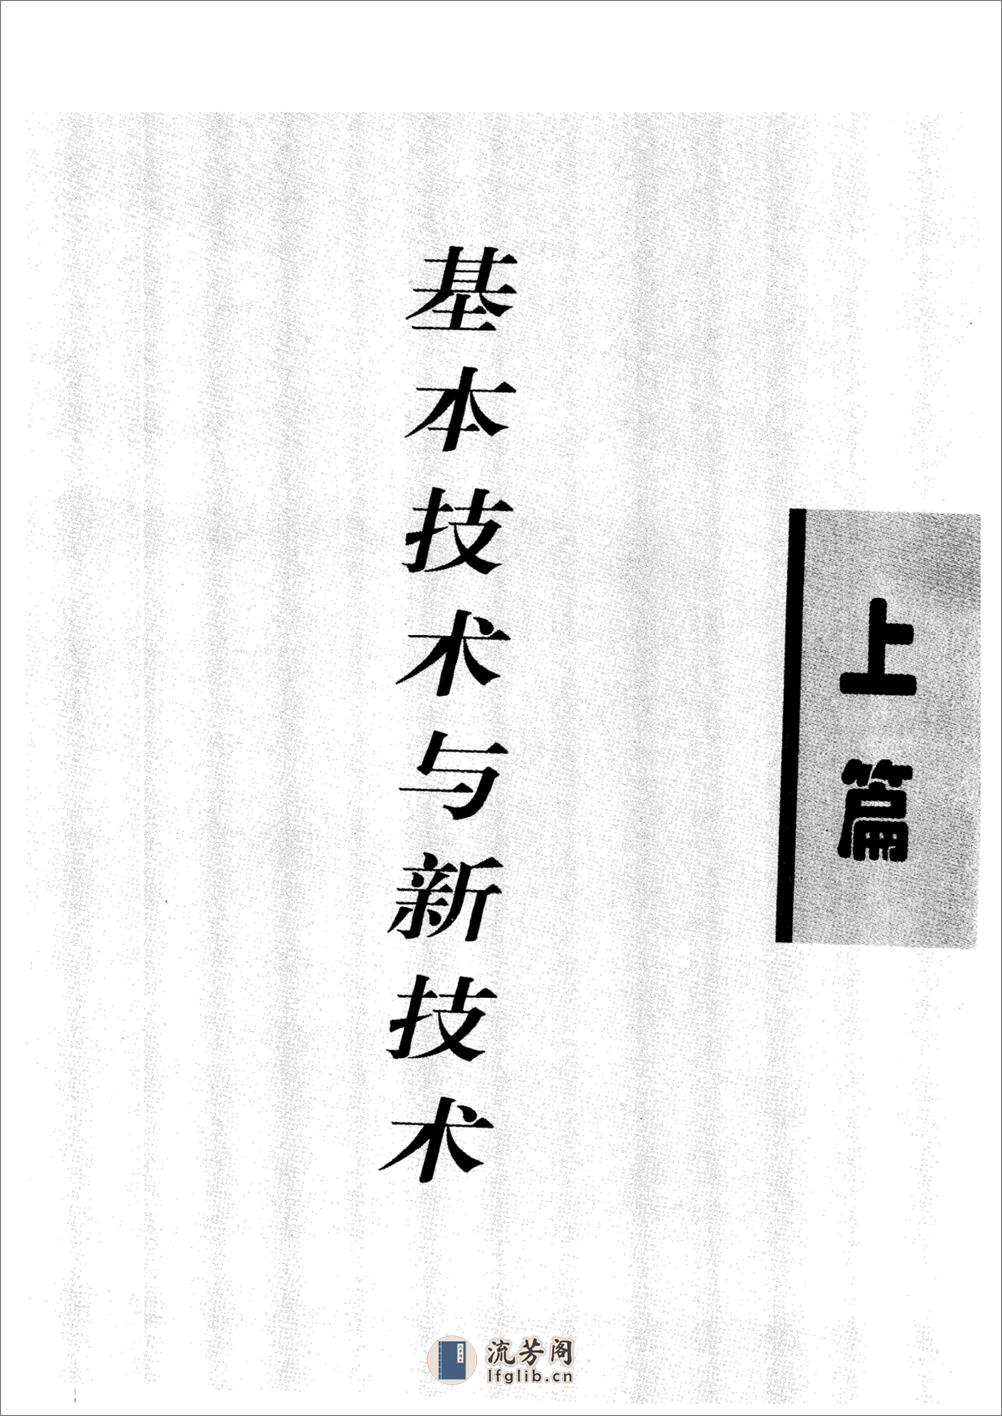 上篇
基本技术与新技术
流芳阁
lfglib.cn